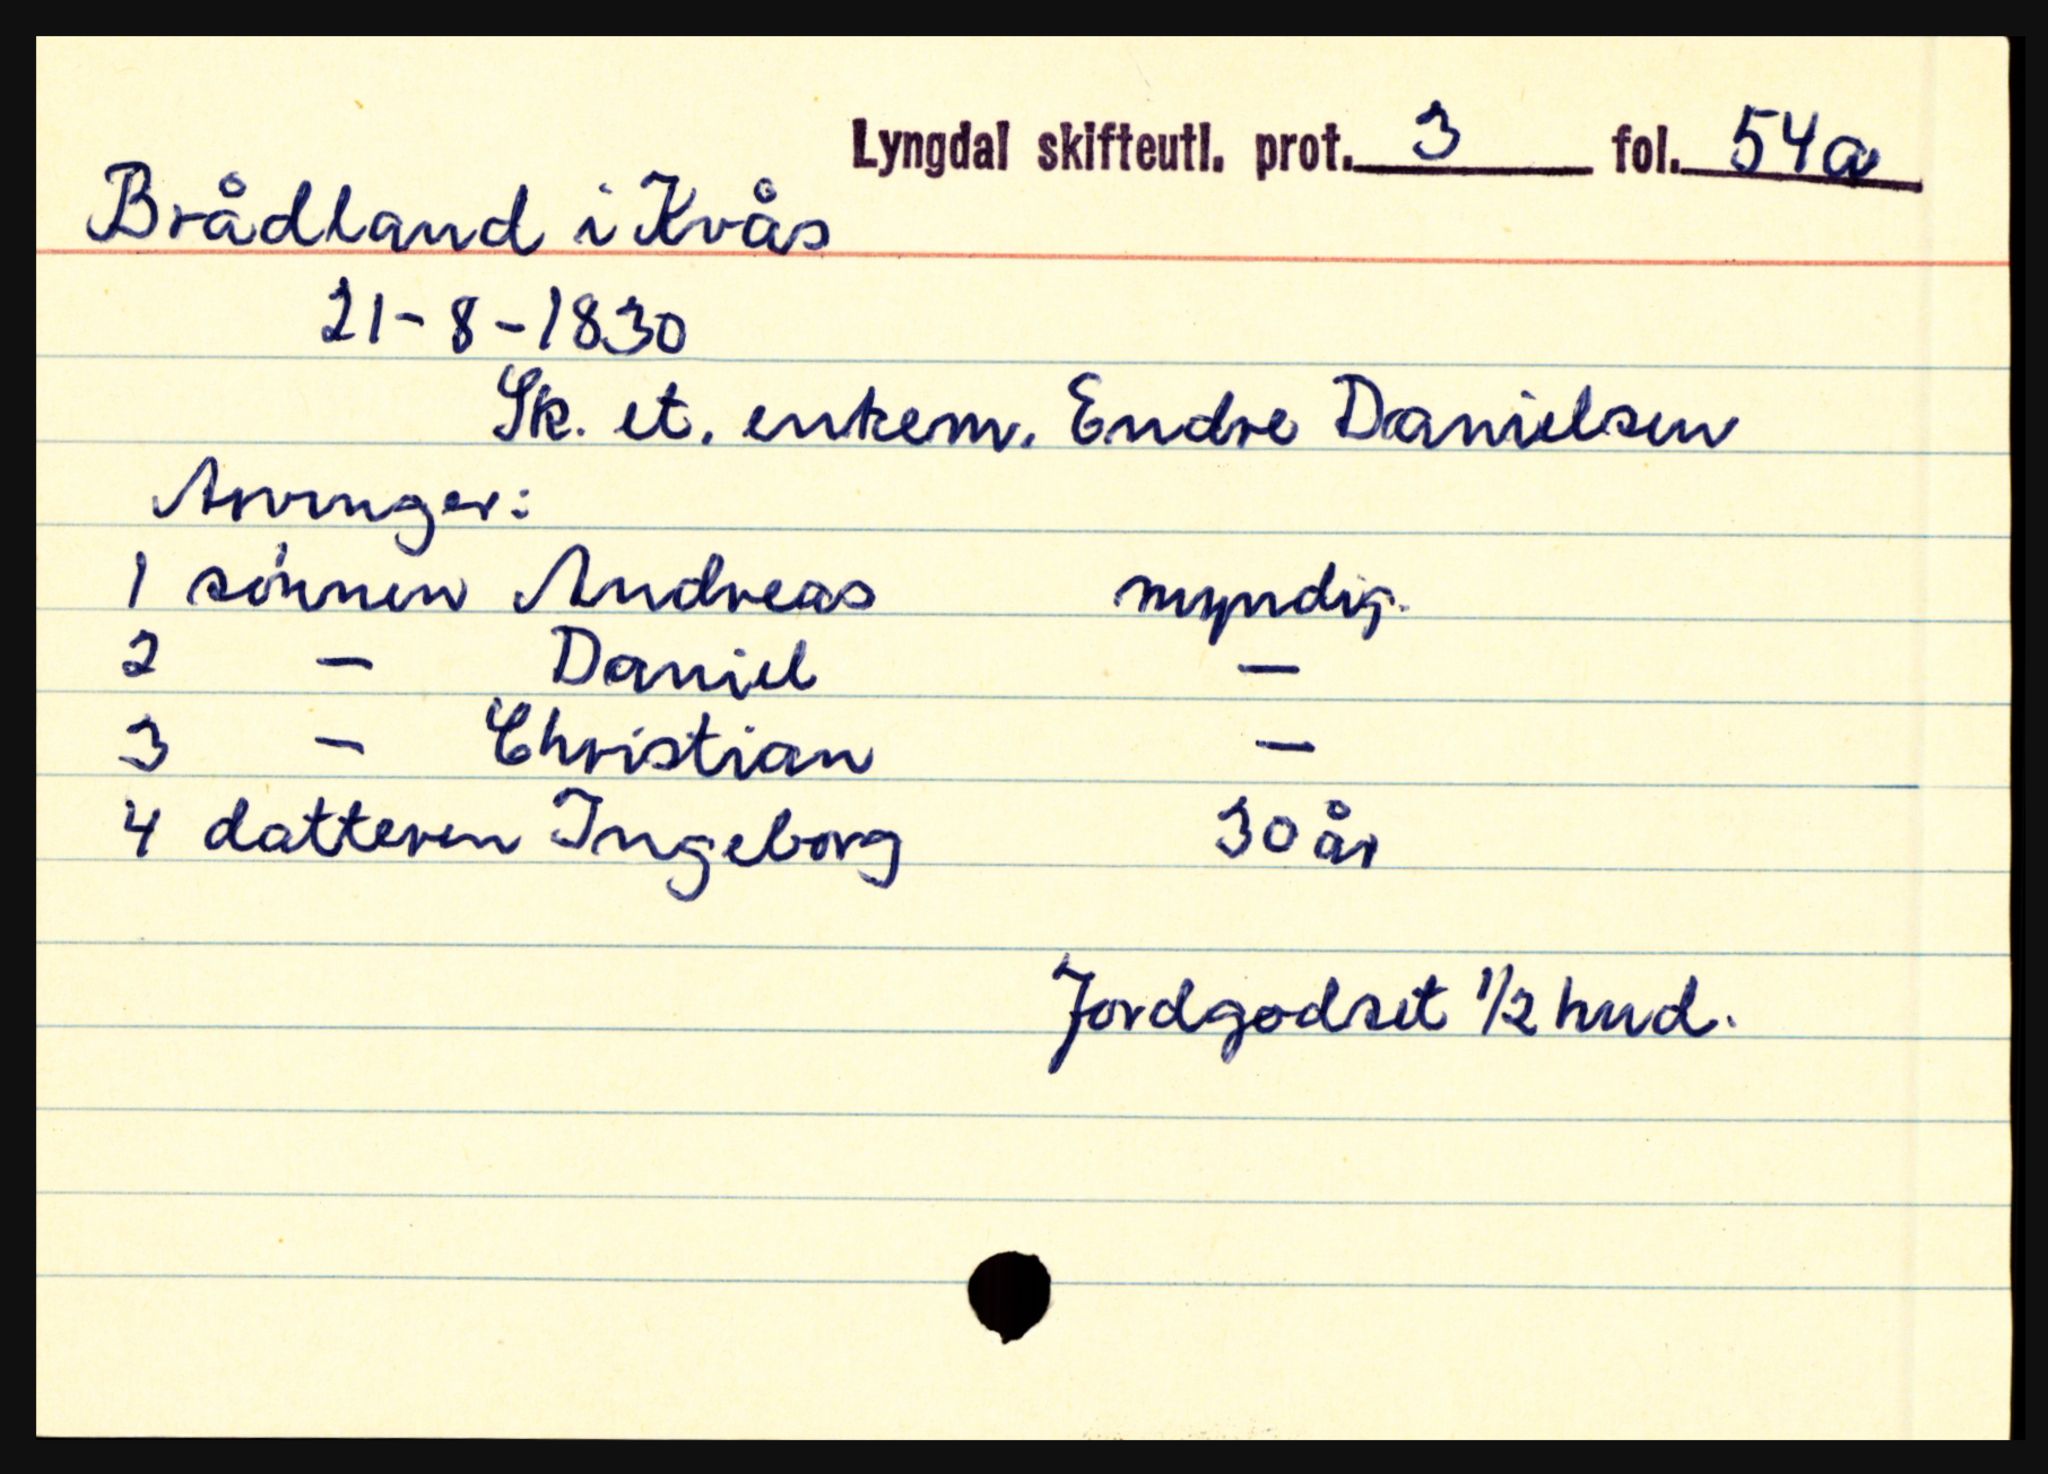 Lyngdal skifteutl. prot. 3 fol. 54a
Brådland i Kvås
21-8-1830
Sk. et. enkem. Endre Danielsen
Arvinger:
1 sønnen Andreas myndig.
2 — Daniel —
3 — Christian —
4 datteren Ingeborg 30 år
Jordgodset 1/2 hud.